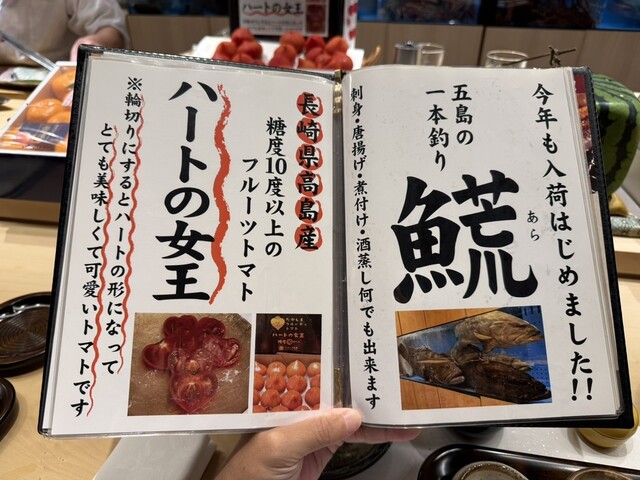 今年も入荷はじめました!!
あら
鱶
五島の
一本釣り
刺身・唐揚げ・煮付け・酒蒸し何でも出来ます
長崎県高島産
糖度10度以上の
フルーツトマト
ハートの女王
※輪切りにするとハートの形になって
とても美味しくて可愛いトマトです
ハートの女王
ハートの女王